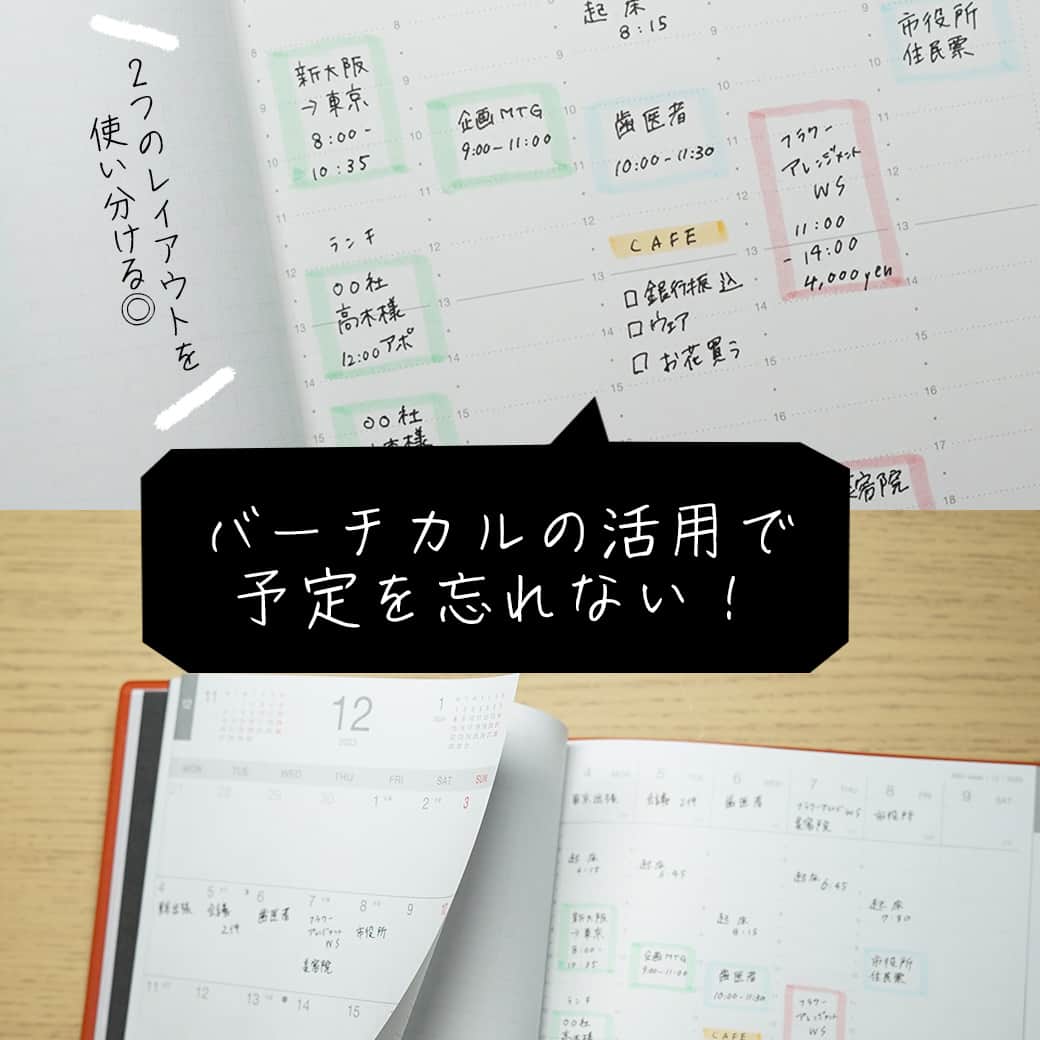 2つのレイアウトを
使い分ける◎
8
9
10
11
12
13
14
15
新大阪
→東京
8:00-
10:35
ランチ
〇〇社
高木様
12:00アポ
〇〇社
企画MTG
9:00-11:00
起床
8:15
歯医者
10:00-11:30
CAFE
□銀行振込
□ウェア
□お花買う
フラワー
アレンジメント
WS
11:00
-14:00
4,000yen
市役所
住民票
美容院
17
18
バーチカルの活用で
予定を忘れない!
12
11
12
2023
1
MON TUE WED THU FRI SAT SUN
27 28 29 30 1 2 3
4 5 6 7 8 9 10
会議
歯医者
フラワー
アレンジメント
WS
美容院
市役所
11 12 13 14 15
4 MON 5 TUE 6 WED 7 THU 8 FRI 9 SAT
東京出張
会議
歯医者
フラワーアレンジWS
美容院
市役所
起床
6:15
起床
6:45
起床
8:15
起床6:45
起床
7:30
新大阪
→東京
8:00-
10:35
ランチ
〇〇社
高木様
企画MTG
9:00-11:00
歯医者
10:00-11:30
CAFE
フラワー
アレンジメント
WS
市役所
住民票